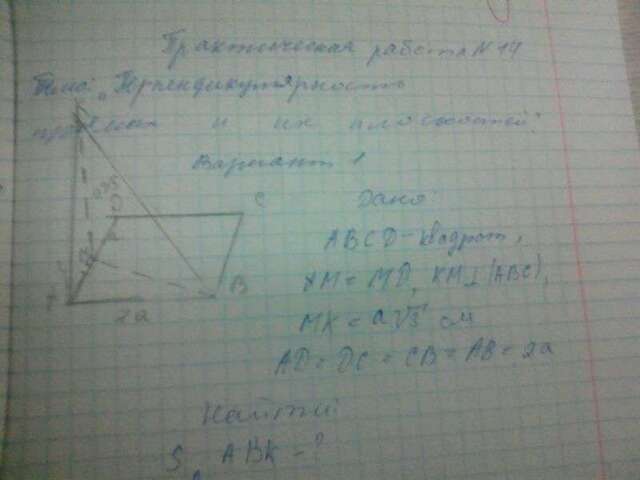 Практическая работа №14
Тема: "Перпендикулярность
прямых и их плоскостей"
Вариант 1
Дано:
ABCD - квадрат,
AM = MD, KM ⊥ (ABC),
MK = a√3 см
AD = DC = CB = AB = 2a
Найти:
S ABK - ?
a√3
D
C
M
A
B
2a